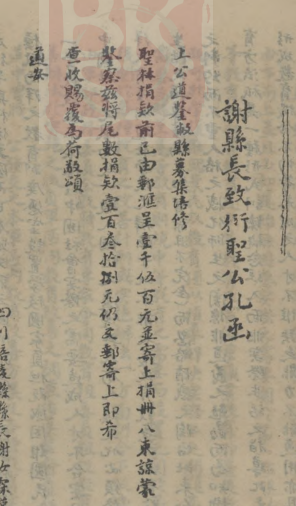 謝縣長致衍聖公孔函
上公道鑒敝縣募集培修
聖林捐欵前已由郵滙呈壹千伍百元並寄上捐冊八束諒蒙
鑒察茲將尾數捐欵壹百叁拾捌元仍交郵寄上即希
查收賜覆為荷敬頌
道安
四川 縣長謝